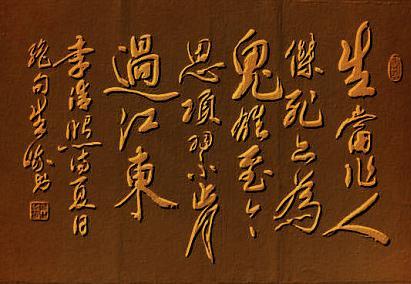 生當作人
傑死亦為
鬼雄至今
思項羽不肯
過江東
李清照詩夏日
絕句